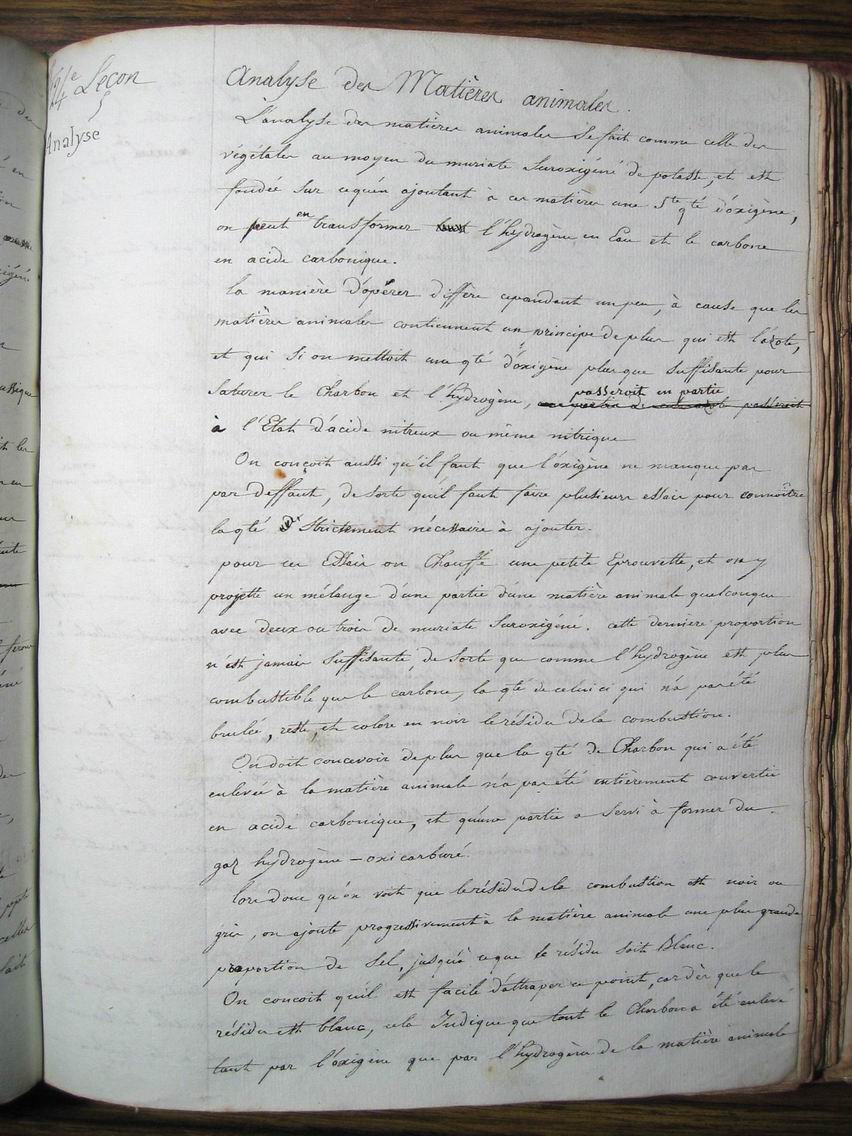 24e Leçon
Analyse
Analyse des Matières animales.
L'analyse des matières animales se fait comme celle des
végétales au moyen du muriate suroxigéné de potasse, et est
fondée sur ce qu'en ajoutant à ces matières une Ste qté d'oxigène,
on peut en transformer l'hydrogène en Eau et le carbone
en acide carbonique.
la manière d'opérer diffère cependant un peu, à cause que les
matières animales contiennent un principe de plus qui est l'azote,
et qui si on mettoit une qté d'oxigène plus que suffisante pour
saturer le Charbon et l'hydrogène, passeroit en partie
à l'Etat d'acide nitreux ou même nitrique
On conçoit aussi qu'il faut que l'oxigène ne manque pas
par deffaut, de sorte qu'il faut faire plusieurs essais pour connoître
la qté strictement nécessaire à ajouter.
pour ces Essais on chauffe une petite Eprouvette, et on y
projette un mélange d'une partie d'une matière animale quelconque
avec deux ou trois de muriate suroxigéné. cette dernière proportion
n'est jamais suffisante, de sorte que comme l'hydrogène est plus
combustible que le carbone, la qté de celui ci qui n'a pas été
brulée, reste, et colore en noir le résidu de la combustion.
On doit concevoir de plus que la qté de Charbon qui a été
enlevée à la matière animale n'a pas été entièrement convertie
en acide carbonique, et qu'une partie a servi à former du
gaz hydrogène - oxicarburé.
lors donc qu'on voit que le résidu de la combustion est noir ou
gris, on ajoute progressivement à la matière animale une plus grande
proportion de sel, jusqu'à ce que le résidu soit Blanc.
On conçoit qu'il est facile d'attraper ce point, car dès que le
résidu est blanc, cela Indique que tout le Charbon a été enlevé
tant par l'oxigène que par l'hydrogène de la matière animale